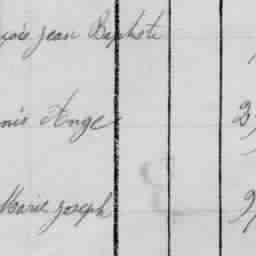 çois Jean Baptiste
nis Ange 2
Marie Joseph 9